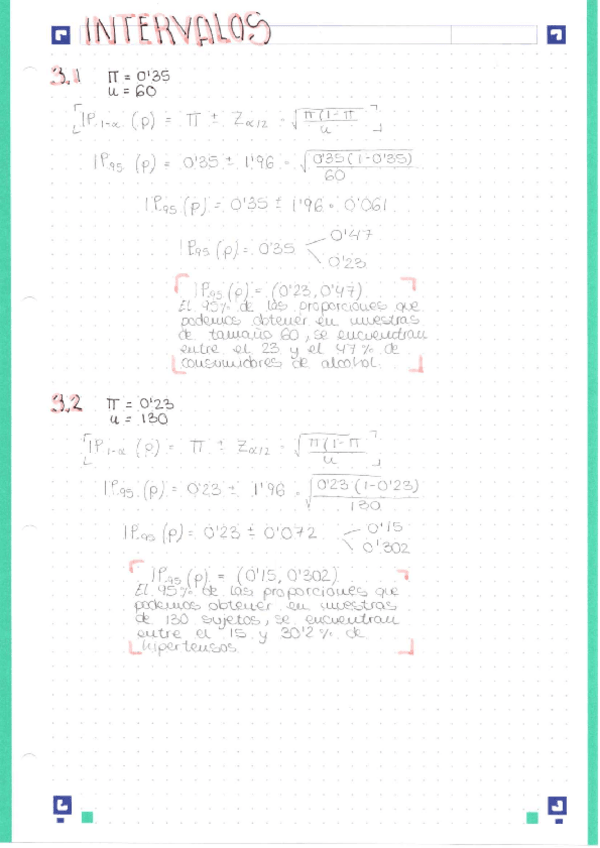 INTERVALOS
3.1 π = 0'35
n = 60
IP₁₋α (p) = π ± Zα/2 · √(π(1-π / n
IP₉₅ (p) = 0'35 ± 1'96 · √(0'35(1-0'35) / 60
IP₉₅ (p) = 0'35 ± 1'96 · 0'061
IP₉₅ (p) = 0'35 < 0'47
0'23
IP₉₅ (p) = (0'23, 0'47)
El 95% de las proporciones que
podemos obtener en muestras
de tamaño 60, se encuentran
entre el 23 y el 47% de
consumidores de alcohol.
3.2 π = 0'23
n = 130
IP₁₋α (p) = π ± Zα/2 · √(π(1-π / n
IP₉₅ (p) = 0'23 ± 1'96 · √(0'23(1-0'23) / 130
IP₉₅ (p) = 0'23 ± 0'072 < 0'15
0'302
IP₉₅ (p) = (0'15, 0'302)
El 95% de las proporciones que
podemos obtener en muestras
de 130 sujetos, se encuentran
entre el 15 y 30'2% de
hipertensos